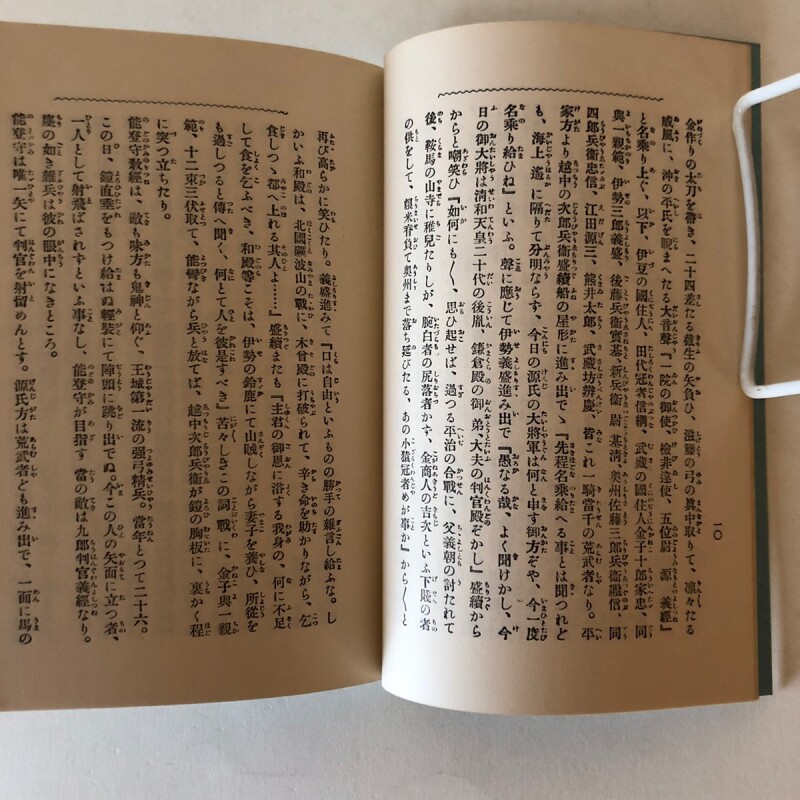 一〇
金作りの太刀を帶き、二十四差たる截生の矢負ひ、滋籐の弓の眞中取りて、凛々たる
威風に、沖の平氏を睨まへたる大音聲『一院の御使、檢非違使、五位尉 源 義經』
と名乘り上ぐ、以下、伊豆の國住人、田代冠者信綱、武蔵の國住人金子十郎家忠、同
與一親範、伊勢三郎義盛、後藤兵衞實基、新兵衞 尉 基清、奥州佐藤三郎兵衞繼信、同
四郎兵衞忠信、江田源三、熊井太郎、武蔵坊辨慶、皆これ一騎當千の荒武者なり。平
家方より越中の次郎兵衞盛續船の屋形に進み出でゝ『先程名乘給へる事とは聞つれど
も、海上 遙 に隔りて分明ならず、今日の源氏の大將軍は何と申す御方ぞや、今一度
名乘り給ひね』といふ。聲に應じて伊勢義盛進み出で『愚なる哉、よく聞けかし、今
日の御大將は清和天皇二十代の後胤、鎌倉殿の御 弟、大夫の判官殿ぞかし』盛續から
からと嘲笑ひ『如何にも〱、思ひ起せば、過つる平治の合戰に、父義朝の討たれて
後、鞍馬の山寺に稚兒たりしが、腕白者の尻落者かす、金商人の吉次といふ下賤の者
の供をして、糧米脊負て奥州まで落ち延びたる、あの小猿冠者めが事か』から〱と
再び高らかに笑ひたり。義盛進みて『口は自由といふものの勝手の雜言し給ふな。し
かいふ和殿は、北國礪波山の戰に、木曾殿に打破られて、辛き命を助かりながら、乞
食しつゝ都へ上れる其人よ……』盛續またも『主君の御恩に浴する我身の、何に不足
して食を乞ふべき、和殿等こそは、伊勢の鈴鹿にて山賊しながら妻子を養ひ、所從を
も過しつると傳へ聞く、何とて人を彼是すべき』苦々しきこの詞戰に、金子與一親
範、十二束三伏取て、能彎ながら兵と放てば、越中次郎兵衞が鎧の胸板に、裏かく程
に突つ立ちたり。
能登守敎經は、敵も味方も鬼神と仰ぐ、王城第一流の强弓精兵。當年とつて二十六。
この日、鎧直垂をもつけ給はぬ輕裝にて陣頭に跳り出でぬ。今この人の矢面に立つ者、
一人として射飛ばされずといふ事なし、能登守が目指す 當の敵は九郎判官義經なり。
塵の如き雜兵は彼の眼中になきところ。
能登守は唯一矢にて判官を射留めんとす。源氏方は荒武者ども進み出で、一面に馬の